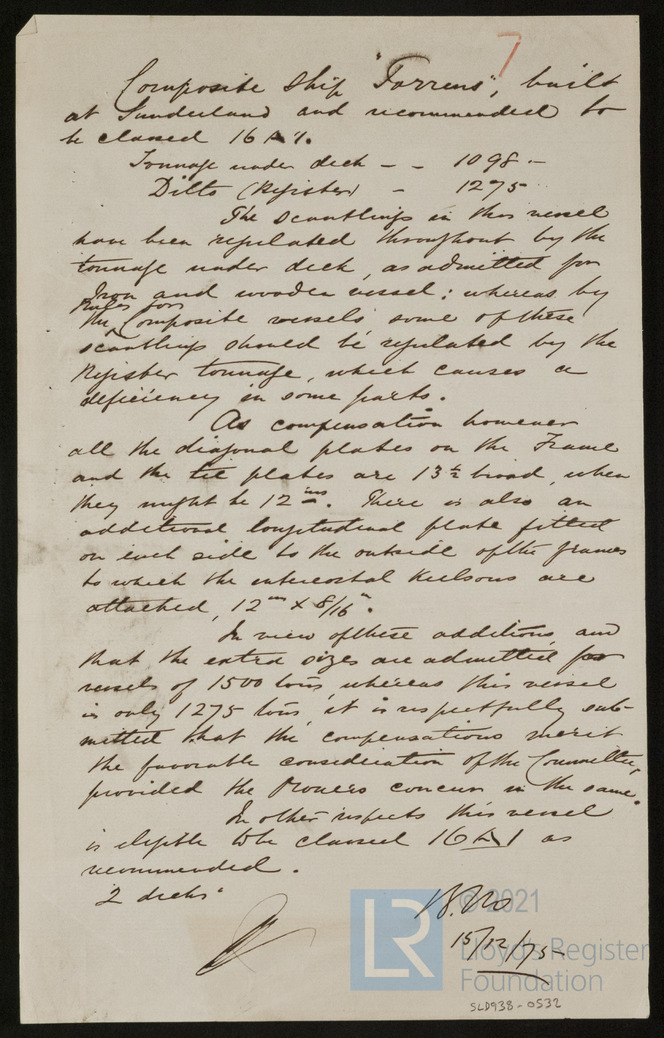 7
Composite Ship "Torrens", built
at Sunderland and recommended to
be classed 16 A 1.
Tonnage under deck - - 1098 -
Ditto (Register) - 1275
The scantlings in this vessel
have been regulated throughout by the
tonnage under deck, as admitted for
Iron and wooden vessel; whereas by
Rules for
the Composite vessels some of these
scantlings should be regulated by the
Register tonnage, which causes a
deficiency in some parts.
As compensation however
all the diagonal plates on the Frame
and the tie plates are 13½ broad, when
they might be 12 ins. There is also an
additional longitudinal plate fitted
on each side to the outside of the frames
to which the intercostal keelsons are
attached, 12 in x 8/16 in.
In view of these additions, and
that the extra sizes are admitted for
vessels of 1500 tons, whereas this vessel
is only 1275 tons, it is respectfully sub-
mitted that the compensations merit
the favorable consideration of the Committee,
provided the Owners concur in the same.
In other respects this vessel
is eligible to be classed 16 A 1 as
recommended.
2 decks
15/12/75
LR
© 2021
Lloyd's Register
Foundation
SLD938-0532